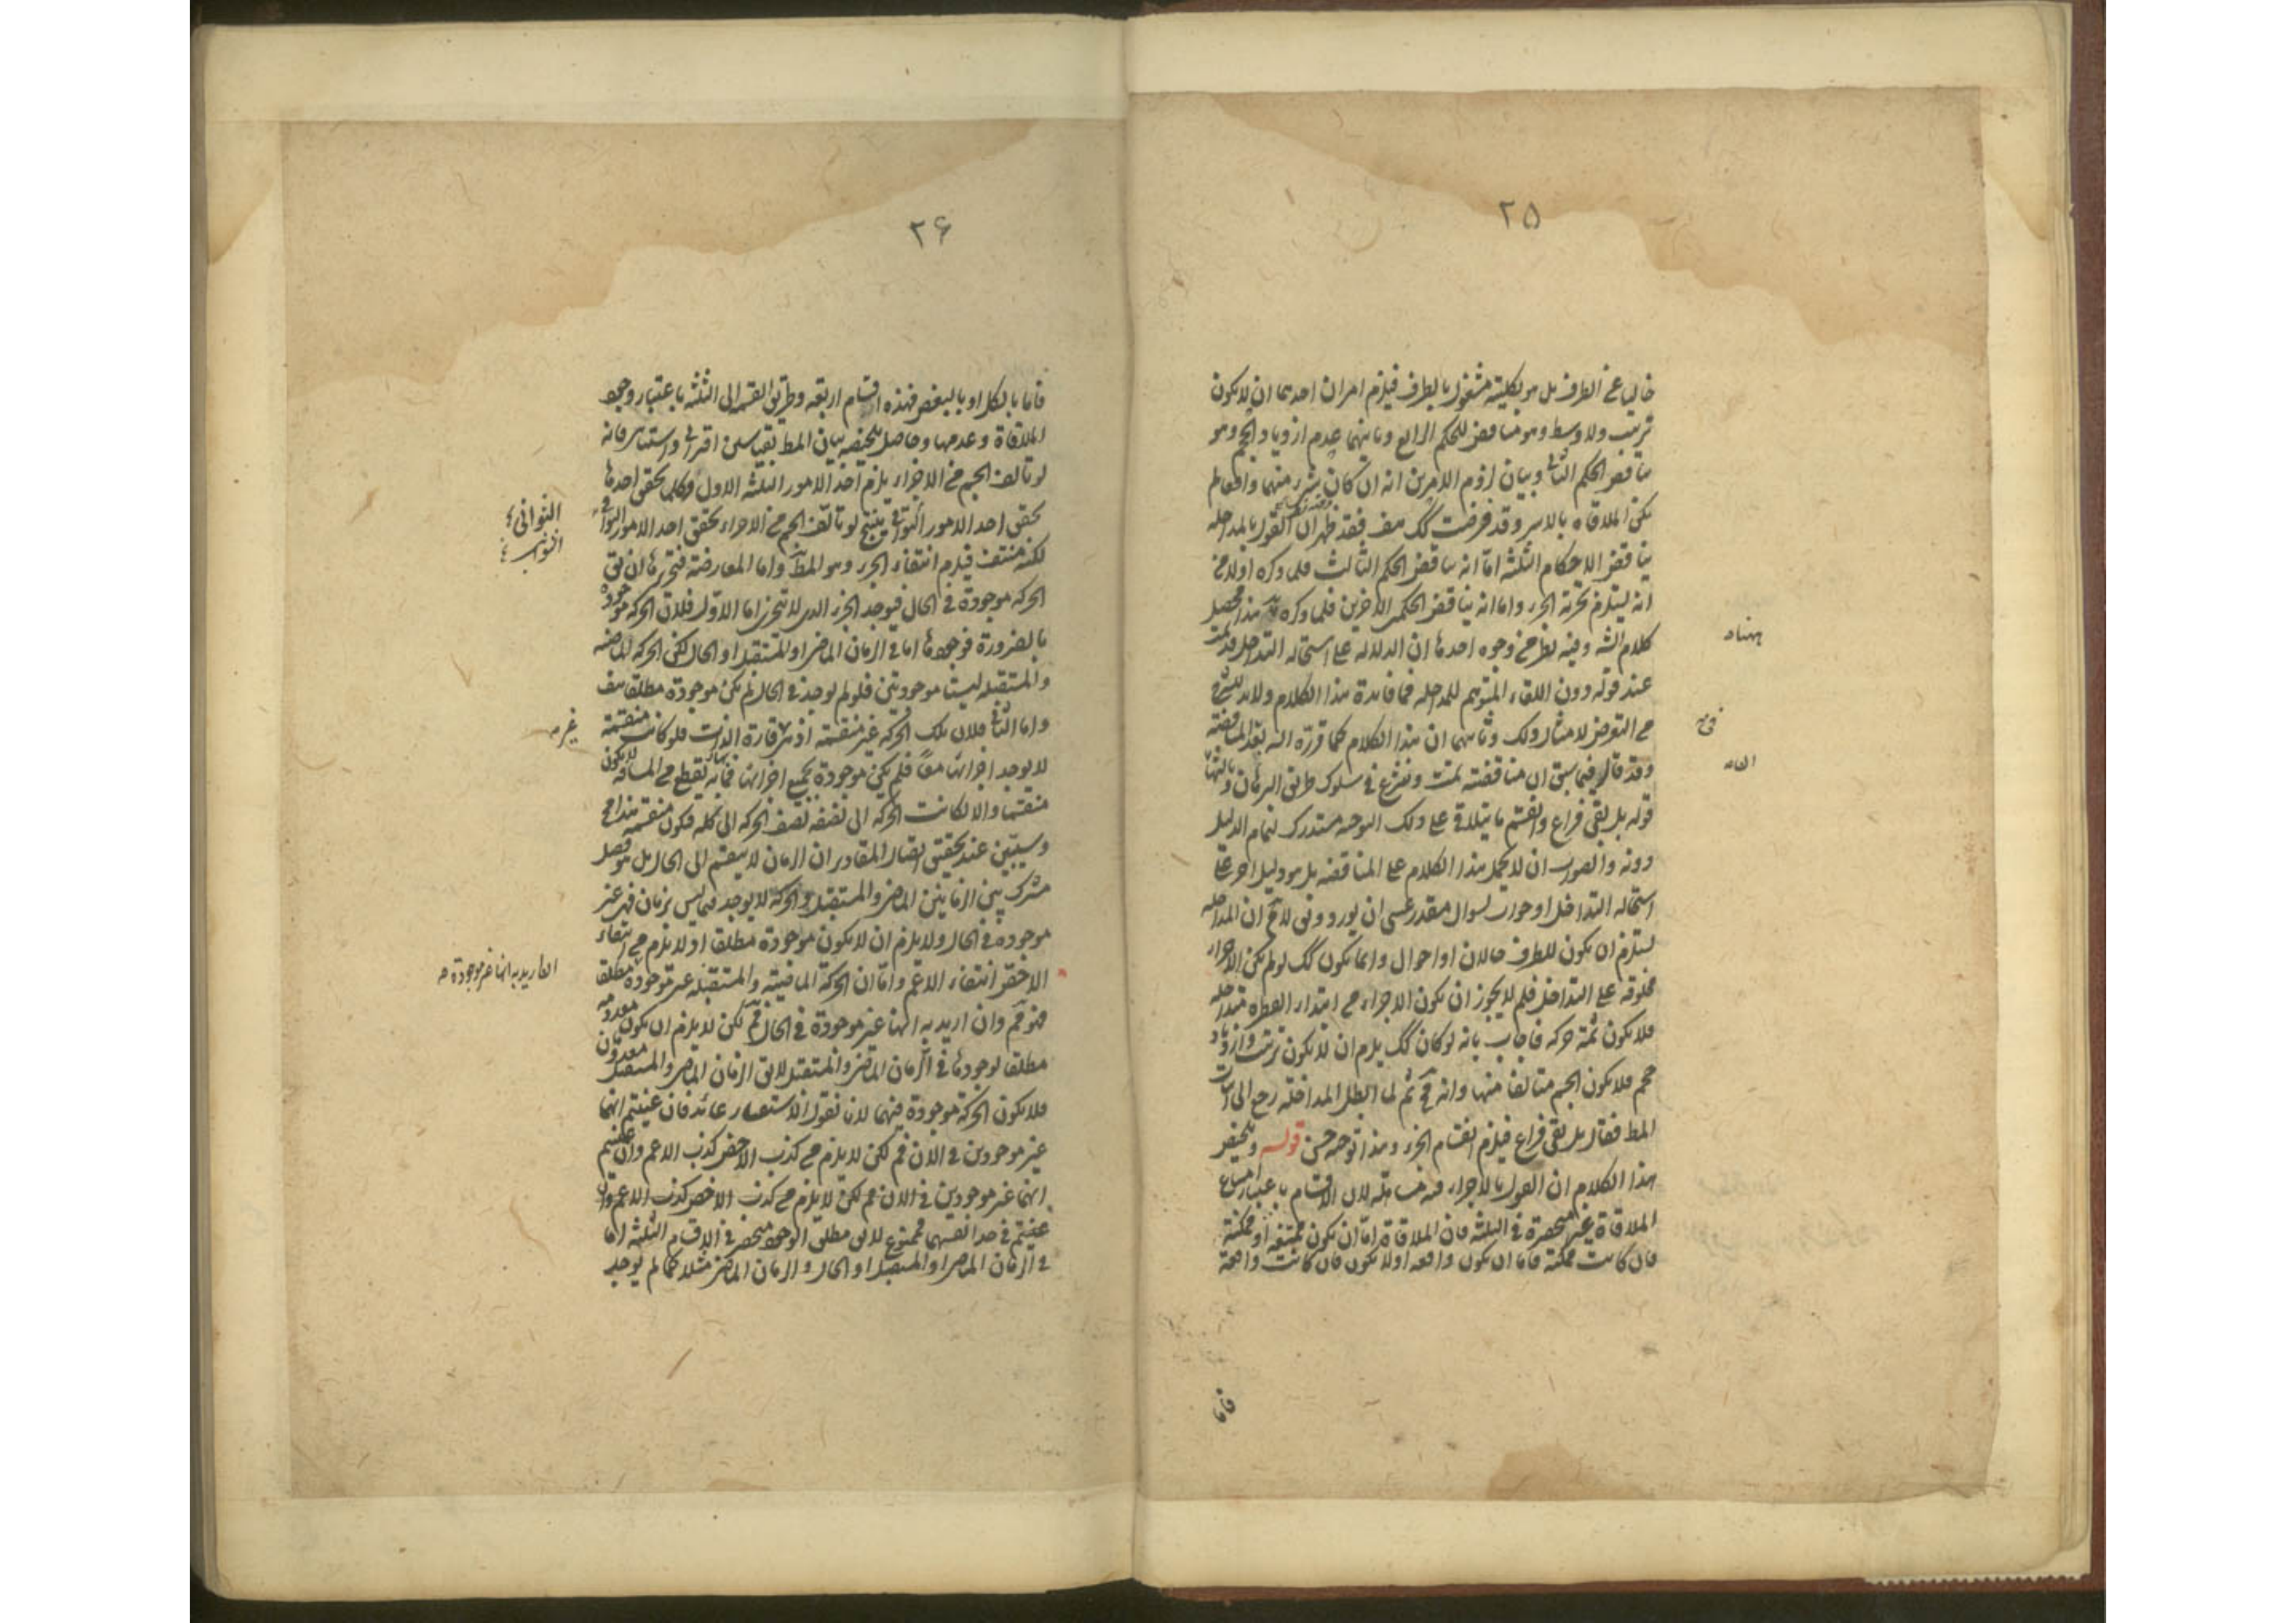 ٢٥
خاليا عن الطرف بل هو بكليته مشغول بالطرف فيلزم امران احدهما ان لا يكون
ترتيب ولا وسط وهو مناقض للحكم الرابع وثانيهما عدم ازدياد الحجم وهو
مناقض الحكم الثانى وبيان لزوم الامرين انه ان كان شىء منهما لم
يكن الملاقاه بالاسر وقد فرضت كك هف فقد ظهر ان القول بالمداخله
يناقض الاحكام الثلثه اما انه يناقض الحكم الثالث فلما ذكره اولا من
انه يستلزم تجزئة الجزء واما انه يناقض الحكمين الاخرين فلما ذكره هذا محصل
كلام الشه وفيه نظر من وجوه احدها ان الدلاله على استحاله التداخل قد تمت
عند قوله دون اللقاء المتوهم للمداخله فما فائدة هذا الكلام ولا بد للشرح
من التعرض لامثال ذلك وثانيهما ان هذا الكلام كما قرره الشه بقية المناقضة
وقد قال فيما سبق ان مناقضته تمت ونشرع فى سلوك طريق البرهان وثالثها
قوله بل بقى فراغ وانقسم ما يتلاقى على ذلك الوجه مستدرك لتمام الدليل
دونه والصواب ان لا يحمل هذا الكلام على المناقضه بل هو دليل اخر على
استحاله التداخل او جواب لسوال مقدر عسى ان يورد ونى لانم ان المداخله
يستلزم ان يكون للطرف حالان او احوال وانما يكون كك لو لم يكن الاجزاء
مخلوقه على التداخل فلم لا يجوز ان يكون الاجزاء من ابتداء الفطره متداخله
فلا يكون ثمة حركه فاجاب بانه لو كان كك يلزم ان لا يكون ترتيب وازدياد
حجم فلا يكون الجسم متالفا منها وانه مح ثم لما ابطل المداخله رجع الى اثبات
المط فقال بل بقى فراغ فيلزم انقسام الجزء وهذا توجيه حسن قوله وتلخيص
هذا الكلام ان القول بالاجزاء فيه مساهله لان الاقسام باعتبار امتناع
الملاقاة غير منحصرة فى الثلثه فان الملاقاة اما ان يكون ممتنعه او ممكنة
فان كانت ممكنة فاما ان يكون واقعه اولا يكون فان كانت واقعة
فاما
٢٦
فاما بالكل او بالبعض فهذه اقسام اربعه وطريق القسمه الى الثلثه باعتبار وجود
الملاقاة وعدمها وحاصل تلخيصه بيان المط بقياسين اقترانى واستثنائى فانه
لو تالف الجسم من الاجزاء يلزم احد الامور الثلثه الاول وكلما تحقق احدها
تحقق احد الامور الثوانى ينتج لو تالف الجسم من الاجزاء تحقق احد الامور الثوانى
لكنه منتف فيلزم انتفاء الجزء وهو المط واما المعارضة فتحريرها ان نق
الحركه موجودة فى الحال فيوجد الجزء الذى لا يتجزى اما الاول فلان الحركه موجودة
بالضرورة فوجودها اما فى الزمان الماضى او المستقبل او الحال لكن الحركه الماضيه
والمستقبله ليستا موجودتين فلو لم يوجد فى الحال لم يكن موجودة مطلقا هف
واما الثانى فلان تلك الحركه غير منقسمة اذ هى غير قارة الذات فلو كانت منقسمة
لا يوجد اجزائها معا فلم يكن موجودة بجميع اجزائها فما به يقطع من المسافه لا يكون
منقسما والا لكانت الحركه الى نصفه نصف الحركه الى كله فيكون منقسمه هذا مح
وسيتبين عند تحقيق اتصال المقادير ان الزمان لا ينقسم الى الحال بل هو فصل
مشترك بين الزمانين الماضى والمستقبل والحركه لا يوجد فيما ليس بزمان فهى غير
موجودة فى الحال ولا يلزم ان لا يكون موجودة مطلقا اذ لا يلزم من انتفاء
الاخص انتفاء الاعم واما ان الحركة الماضية والمستقبله غير موجودة مطلقا
فم وان اريد به انها غير موجودة فى الحال فم لكن لا يلزم ان يكون معدومه
مطلقا لوجودها فى الزمان الماضى والمستقبل لا نق الزمان الماضى والمستقبل معدومان
فلا يكون الحركة موجودة فيهما لانا نقول الاستفسار عائد فان عنيتم انهما
غير موجودين فى الان فم لكن لا يلزم من كذب الاخص كذب الاعم وان عنيتم
انهما غير موجودين فى الان فم لكن لا يلزم من كذب الاخص كذب الاعم وان
عنيتم فى حد انفسهما فممنوع لا نق مطلق الوجود منحصر فى الاقسام الثلثه اما
فى الزمان الماضى او المستقبل او الحال والزمان الماضى مثلا كما لم يوجد
الثوانى
غير
ان اريد به انها غير موجودة